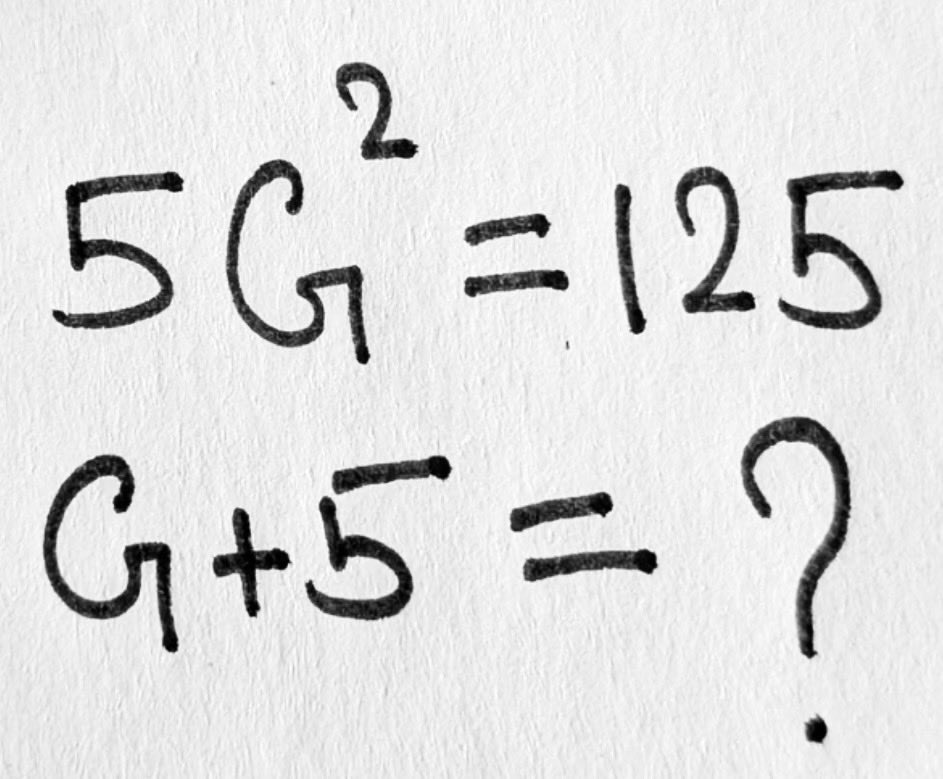 5G² = 125
G+5 = ?